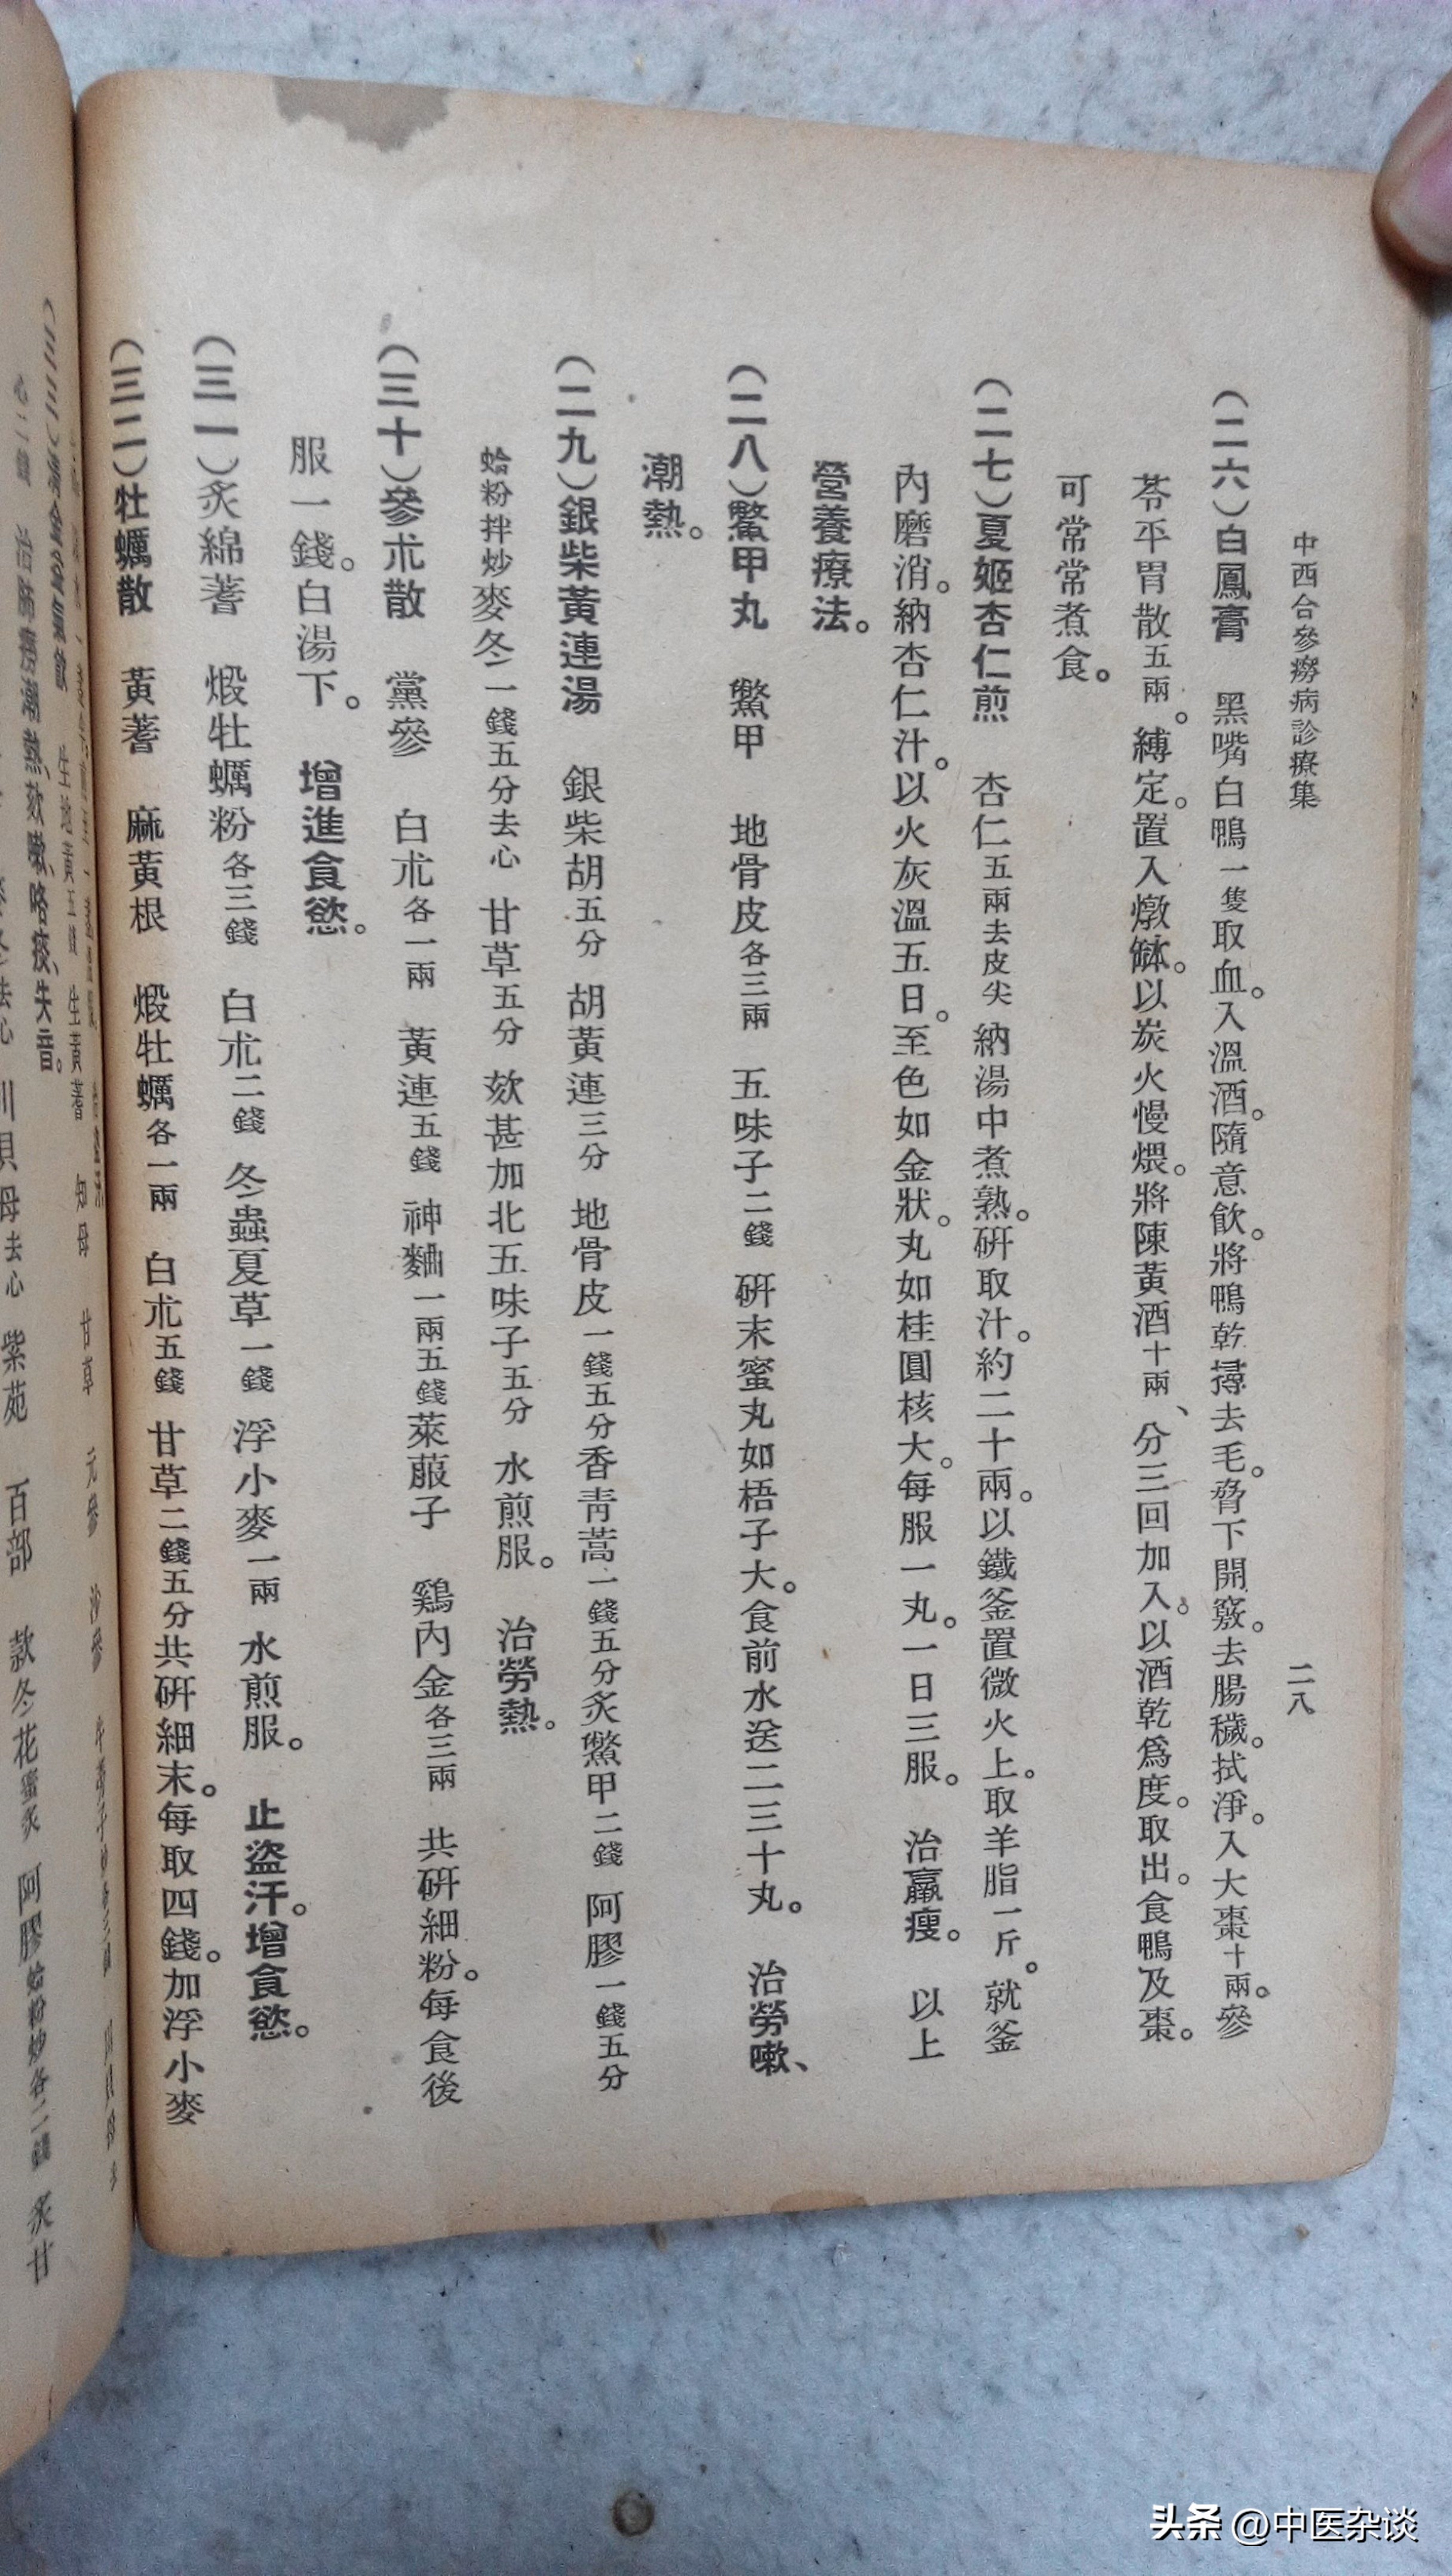 中西合參癆病診療集
二八
（二六）白鳳膏　黑嘴白鴨一隻取血。入溫酒。隨意飲。將鴨乾撏去毛。脅下開竅。去腸穢。拭淨。入大棗十兩。參
苓平胃散五兩。縛定。置入燉缽。以炭火慢煨。將陳黃酒十兩、分三回加入。以酒乾爲度。取出。食鴨及棗。
可常常煮食。
（二七）夏姬杏仁煎　杏仁五兩去皮尖納湯中煮熟。研取汁。約二十兩。以鐵釜置微火上。取羊脂一斤。就釜
內磨消。納杏仁汁。以火灰溫五日。至色如金狀。丸如桂圓核大。每服一丸。一日三服。　治羸瘦。　以上
營養療法。
（二八）鱉甲丸　鱉甲　地骨皮各三兩　五味子二錢　研末蜜丸如梧子大。食前水送二三十丸。　治勞嗽、
潮熱。
（二九）銀柴黃連湯　銀柴胡五分　胡黃連三分　地骨皮一錢五分香青蒿一錢五分炙鱉甲二錢　阿膠一錢五分
蛤粉拌炒麥冬一錢五分去心　甘草五分　欬甚加北五味子五分　水煎服。　治勞熱。
（三十）參朮散　黨參　白朮各一兩　黃連五錢　神麯一兩五錢萊菔子　鷄內金各三兩　共研細粉。每食後
服一錢。白湯下。　增進食慾。
（三一）炙綿蓍　煅牡蠣粉各三錢　白朮二錢　冬蟲夏草一錢　浮小麥一兩　水煎服。　止盜汗。增食慾。
（三二）牡蠣散　黃蓍　麻黃根　煅牡蠣各一兩　白朮五錢　甘草二錢五分共研細末。每取四錢。加浮小麥
生地黃五錢　生黃蓍　知母　甘草　元參　沙參
治肺癆潮熱、欬嗽、咯痰、失音。
川貝母去心　紫苑　百部　款冬花蜜炙　阿膠蛤粉炒各二錢　炙甘
头条 @中医杂谈